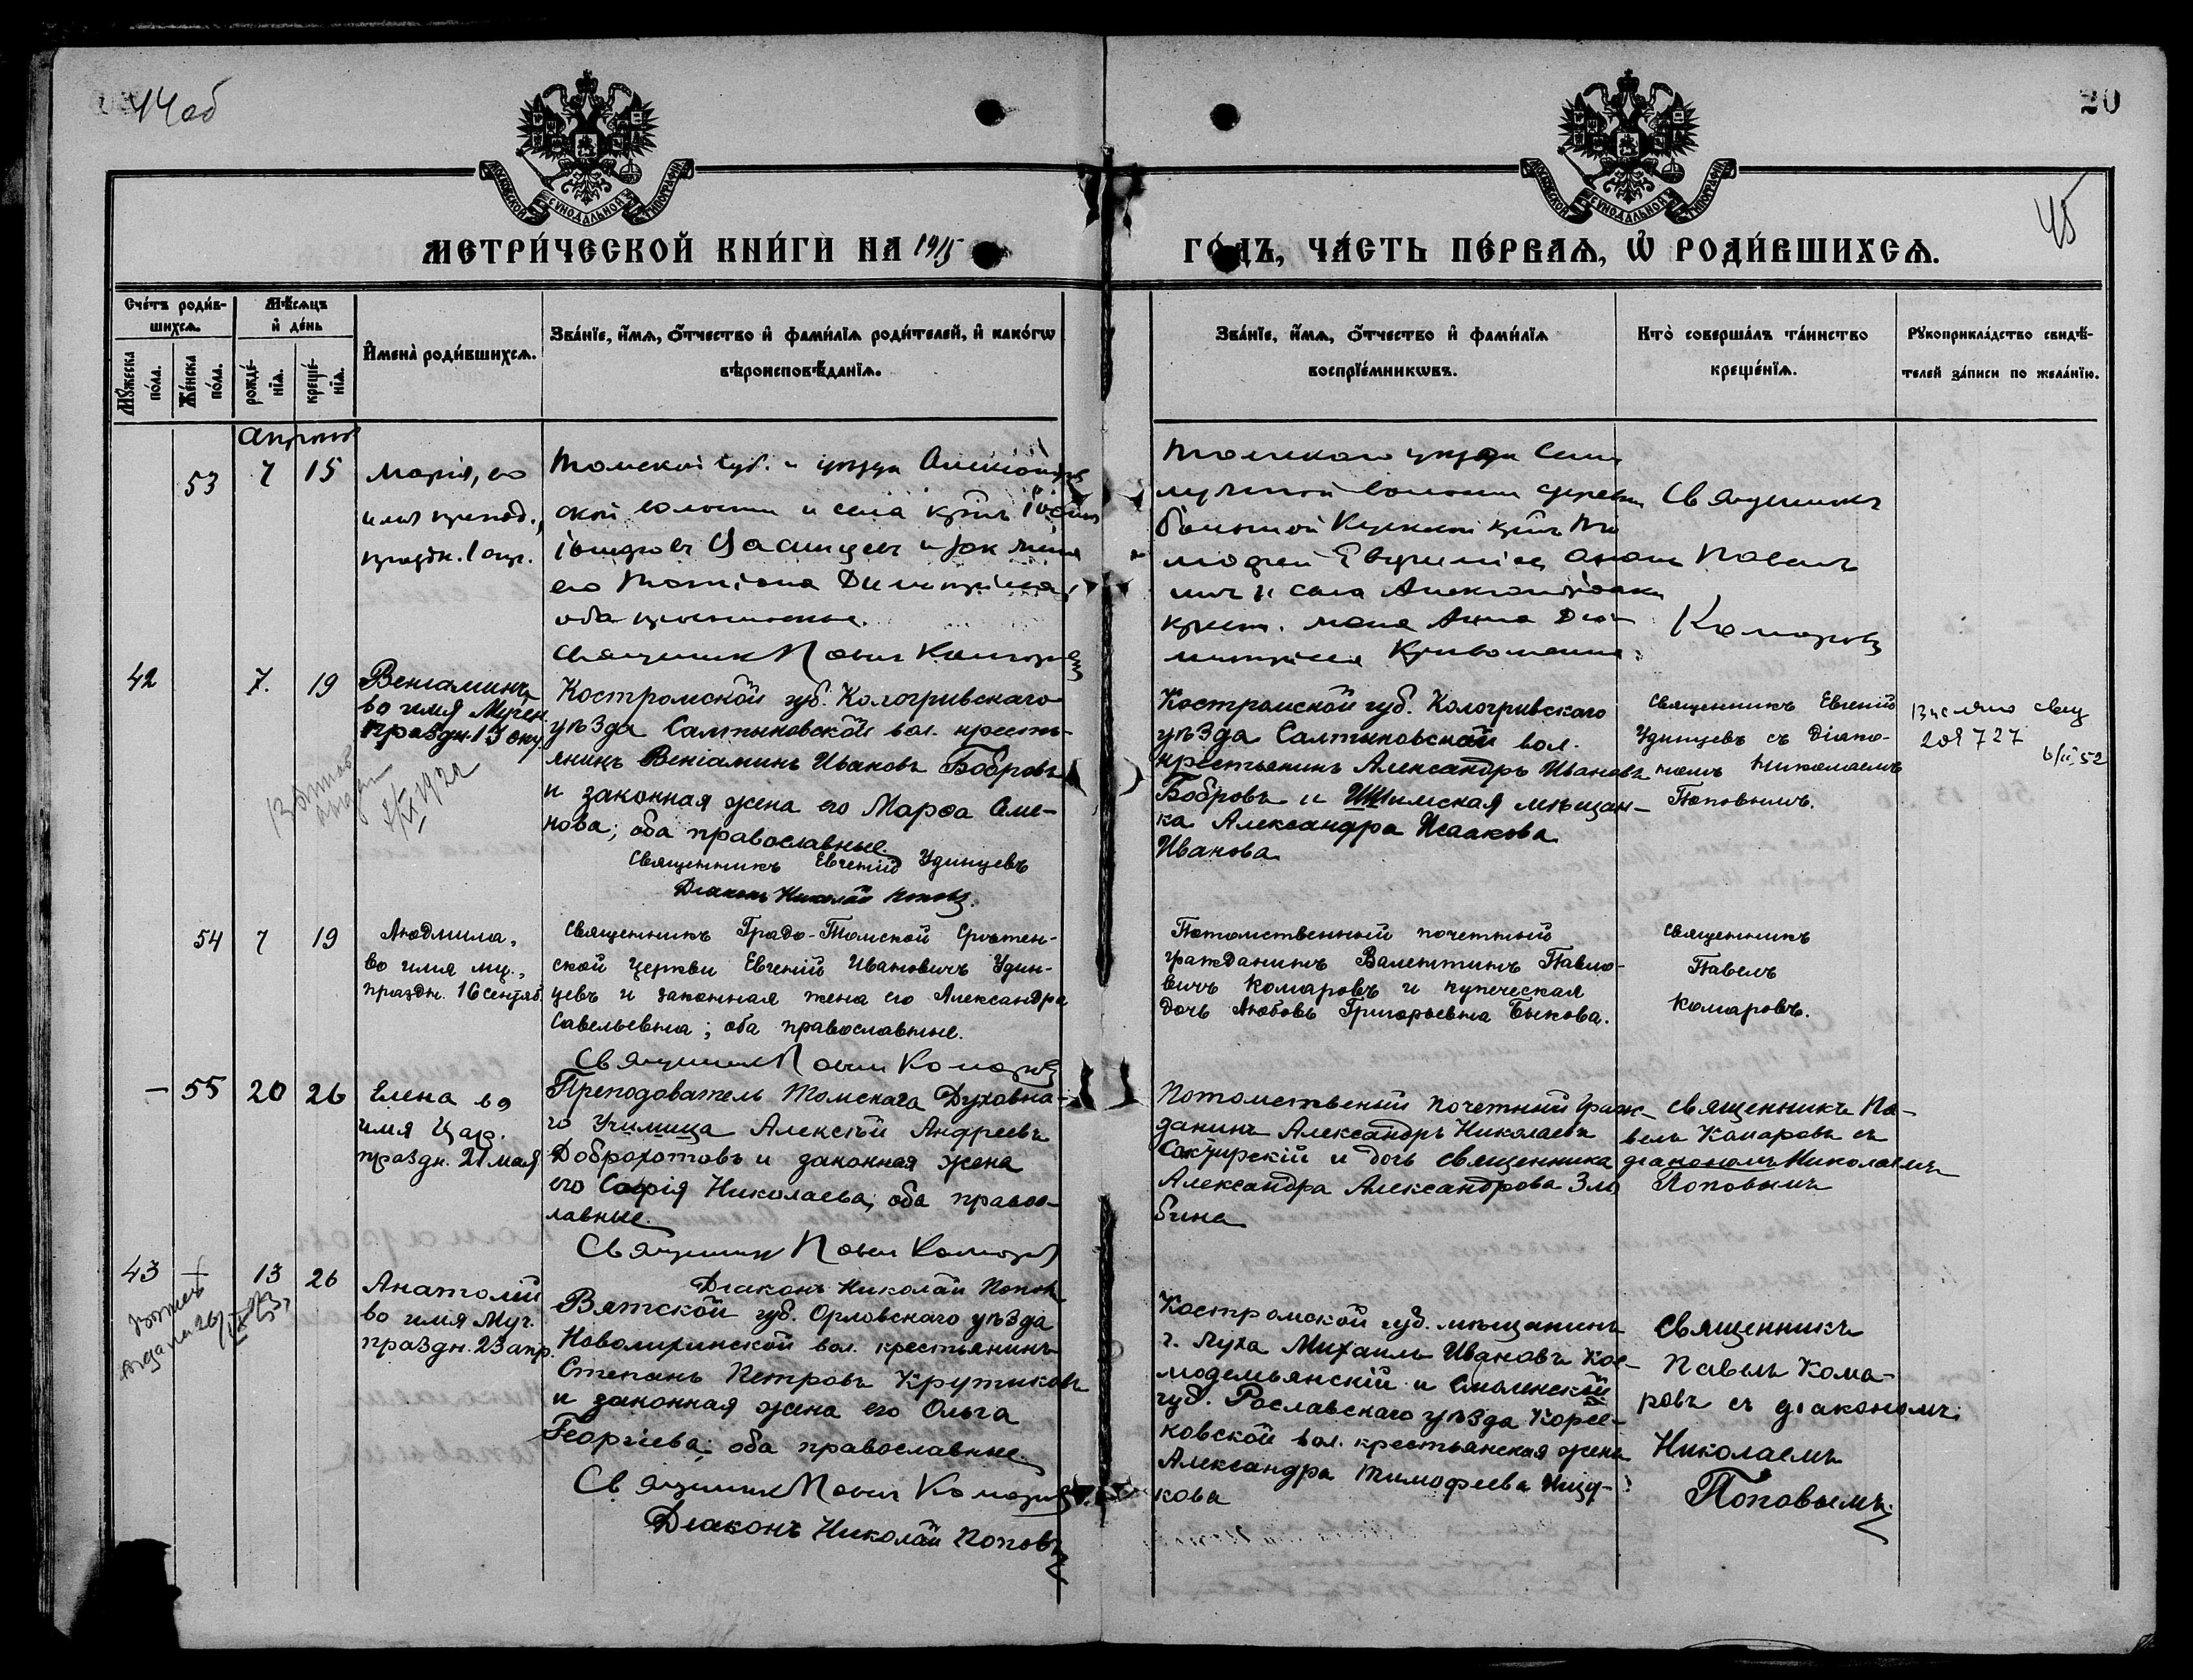 44 об
20
45
МЕТРИ́ЧЕСКОЙ КНИ́ГИ НА 1915
ГО́ДЪ, ЧА́СТЬ ПЕ́РВАѦ, Ѽ РОДИ́ВШИХСѦ.
Сче́тъ роди́в-
шихсѧ.
Мѣ́сѧцъ
и҆ де́нь
Мꙋ́жеска
по́ла.
Же́нска
по́ла.
рожде́-
нїѧ.
креще́-
нїѧ.
И҆мена̀ роди́вшихсѧ.
Зва́нїе, и҆́мѧ, ѻ҆́тчество и҆ фами́лїѧ роди́телей, и҆ како́гѡ
вѣроисповѣ́данїѧ.
Зва́нїе, и҆́мѧ, ѻ҆́тчество и҆ фами́лїѧ
воспрїе́мникѡвъ.
Кто̀ соверша́лъ та́инство
креще́нїѧ.
Рꙋкоприкла́дство свидѣ́-
телей за́писи по жела́нїю.
53 7 15
Марія, во
имя препод.,
праздн. 1 апр.
Томской губ. и уѣзда
ской волости и села
его Татіана Димитріева,
оба православные.
Священникъ Павелъ Комаровъ
Томскаго уѣзда
волости деревни
и села Александровки
крест. жена Анна
Священникъ
Павелъ
Комаровъ
42 7. 19
Веніаминъ
во имя Мучен.
праздн. 13 окт.
Костромской губ. Кологривскаго
уѣзда Салтыковской вол. кресть-
янинъ Веніаминъ Ивановъ Бобровъ
и законная жена его Марѳа Семе-
нова; оба православные
Священникъ Евгеній Удинцевъ
Діаконъ Николай Поповъ.
Костромской губ. Кологривскаго
уѣзда Салтыковской вол.
крестьянинъ Александръ Ивановъ
Бобровъ и Ишимская мѣщан-
ка Александра Исаакова
Иванова
Священникъ Евгеній
Удинцевъ съ Діако-
номъ Николаемъ
Поповымъ.
727
52
1922
54 7 19
Людмила,
во имя мц.,
праздн. 16 сентяб.
Священникъ Градо-Томской Срѣтен-
ской церкви Евгеній Ивановичъ Удин-
цевъ и законная жена его Александра
Савельевна; оба православные.
Священникъ Павелъ Комаровъ
Потомственный почетный
гражданинъ Валентинъ Павло-
вичъ Комаровъ и купеческая
дочь Любовь Григорьевна Быкова.
Священникъ
Павелъ
Комаровъ.
— 55 20 26
Елена во
имя Цар.
праздн. 21 мая
Преподаватель Томскаго Духовна-
го Училища Алексѣй Андреевъ
Доброхотовъ и законная жена
его Софія Николаева; оба правос-
лавные.
Священникъ Павелъ Комаровъ
Діаконъ Николай Поповъ
Потомственый почетный граж-
данинъ Александръ Николаевъ
и дочь священника
Александра Александрова Зло
бина
Священникъ Па-
велъ Комаровъ съ
діакономъ Николаемъ
Поповымъ
43 — 13 26
выдана
Анатолій
во имя Муч.
праздн. 23 апр.
Вятской губ. Орловскаго уѣзда
вол. крестьянинъ
Степанъ Петровъ Крутиковъ
и законная жена его Ольга
Георгіева; оба православные
Священникъ Павелъ Комаровъ
Діаконъ Николай Поповъ
Костромской губ. мѣщанинъ
г. Луха Михаилъ Ивановъ Кос-
модемьянскій и Смоленской
губ. Рославскаго уѣзда Корсе-
ковской вол. крестьянская жена
Александра Тимофеева
кова
Священникъ
Павелъ Кома-
ровъ съ діакономъ
Николаемъ
Поповымъ